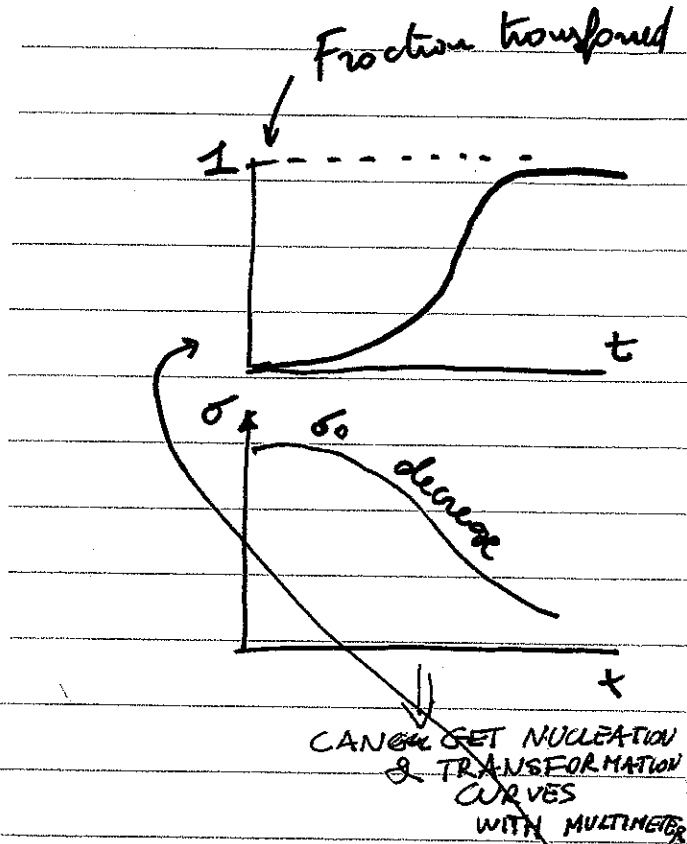 Fraction transformed
1
t
σ σ₀
decrease
t
CAN GET NUCLEATION
& TRANSFORMATION
CURVES
WITH MULTIMETER